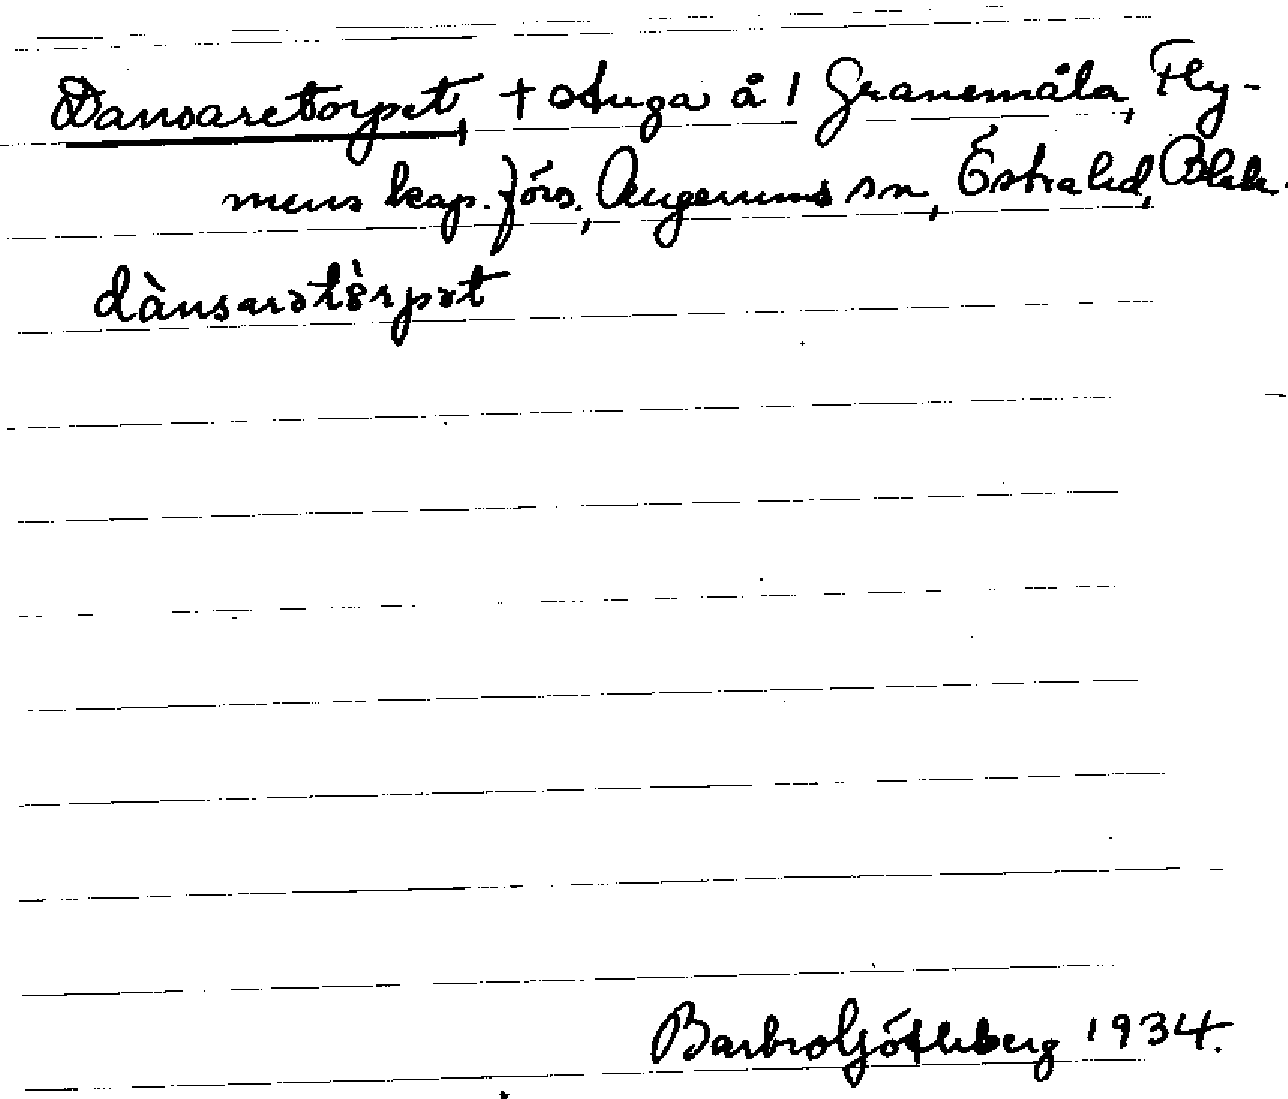 Dansaretorpet, † stuga å 1 Granemåla, Fly-
mens kap. förs., Augerums sn, Östra hd, Blek.
dànsarətòrpət
Barbro Götheberg 1934.